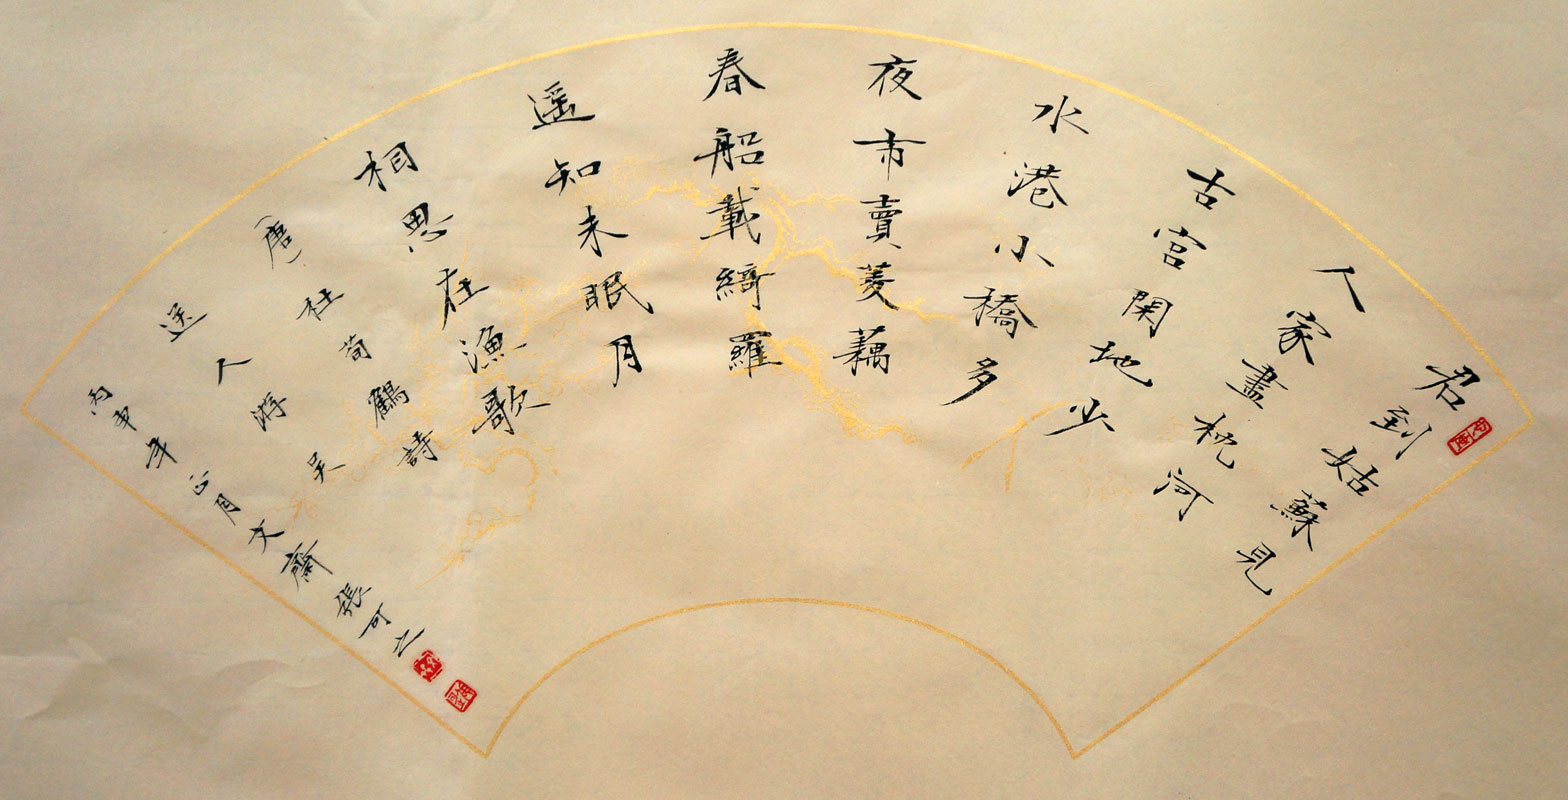 君到姑蘇見
人家盡枕河
古宮閑地少
水港小橋多
夜市賣菱藕
春船載綺羅
遥知未眠月
相思在漁歌
(唐)杜荀鶴詩
送人游吳
丙申年正月文齋張可之